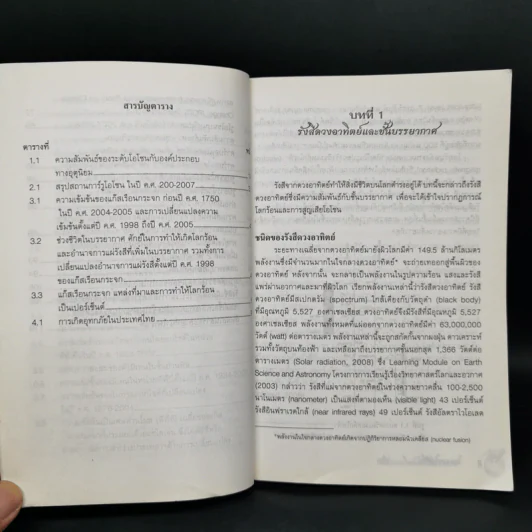 สารบัญตาราง
ตารางที่
1.1 ความสัมพันธ์ของระดับโอโซนกับองค์ประกอบ
ทางอุตุนิยม
2.1 สรุปสถานการณ์รูโอโซน ในปี ค.ศ. 200-2007
3.1 ความเข้มข้นของแก๊สเรือนกระจก ก่อนปี ค.ศ. 1750
ในปี ค.ศ. 2004-2005 และการเปลี่ยนแปลงความ
เข้มข้นตั้งแต่ปี ค.ศ. 1998 ถึงปี ค.ศ. 2005
3.2 ช่วงชีวิตในบรรยากาศ ศักย์ในการทำให้เกิดโลกร้อน
และอำนาจการแผ่รังสีที่เพิ่มในบรรยากาศ รวมทั้งการ
เปลี่ยนแปลงอำนาจการแผ่รังสีตั้งแต่ปี ค.ศ. 1998
ของแก๊สเรือนกระจก
3.3 แก๊สเรือนกระจก แหล่งที่มาและการทำให้โลกร้อน
เป็นเปอร์เซ็นต์
4.1 การเกิดอุทกภัยในประเทศไทย
บทที่ 1
รังสีดวงอาทิตย์และชั้นบรรยากาศ
รังสีจากดวงอาทิตย์ทำให้สิ่งมีชีวิตบนโลกดำรงอยู่ได้ บทนี้จะกล่าวถึงรังสี
ดวงอาทิตย์ซึ่งมีความสัมพันธ์กับชั้นบรรยากาศ เพื่อจะได้เข้าใจปรากฏการณ์
โลกร้อนและการสูญเสียโอโซน
ชนิดของรังสีดวงอาทิตย์
ระยะทางเฉลี่ยจากดวงอาทิตย์มายังผิวโลกมีค่า 149.5 ล้านกิโลเมตร
พลังงานซึ่งมีจำนวนมากในใจกลางดวงอาทิตย์* จะถ่ายเทออกสู่พื้นผิวของ
ดวงอาทิตย์ หลังจากนั้น จะกลายเป็นพลังงานในรูปความร้อน แสงและรังสี
แพร่ผ่านอวกาศและมาที่ผิวโลก เรียกพลังงานเหล่านี้ว่ารังสีดวงอาทิตย์ รังสี
ดวงอาทิตย์มีสเปกตรัม (spectrum) ใกล้เคียงกับวัตถุดำ (black body)
ที่มีอุณหภูมิ 5,527 องศาเซลเซียส ดวงอาทิตย์จึงมีรังสีที่มีอุณหภูมิ 5,527
องศาเซลเซียส พลังงานทั้งหมดที่แผ่ออกจากดวงอาทิตย์มีค่า 63,000,000
วัตต์ (watt) ต่อตารางเมตร พลังงานเหล่านี้จะถูกสกัดกั้นจากผงฝุ่น ดาวเคราะห์
รวมทั้งวัตถุบนท้องฟ้า และเหลือมาถึงบรรยากาศชั้นนอกสุด 1,366 วัตต์ต่อ
ตารางเมตร (Solar radiation, 2008) ซึ่ง Learning Module on Earth
Science and Astronomy โครงการการเรียนรู้เรื่องวิทยาศาสตร์โลกและอวกาศ
(2003) กล่าวว่า รังสีที่แผ่จากดวงอาทิตย์ในช่วงความยาวคลื่น 100-2,500
นาโนเมตร (nanometer) เป็นแสงที่ตามองเห็น (visible light) 43 เปอร์เซ็นต์
รังสีอินฟราเรดใกล้ (near infrared rays) 49 เปอร์เซ็นต์ รังสีอัลตราไวโอเลต
*พลังงานในใจกลางดวงอาทิตย์เกิดจากปฏิกิริยาการหลอมนิวเคลียส (nuclear fusion)